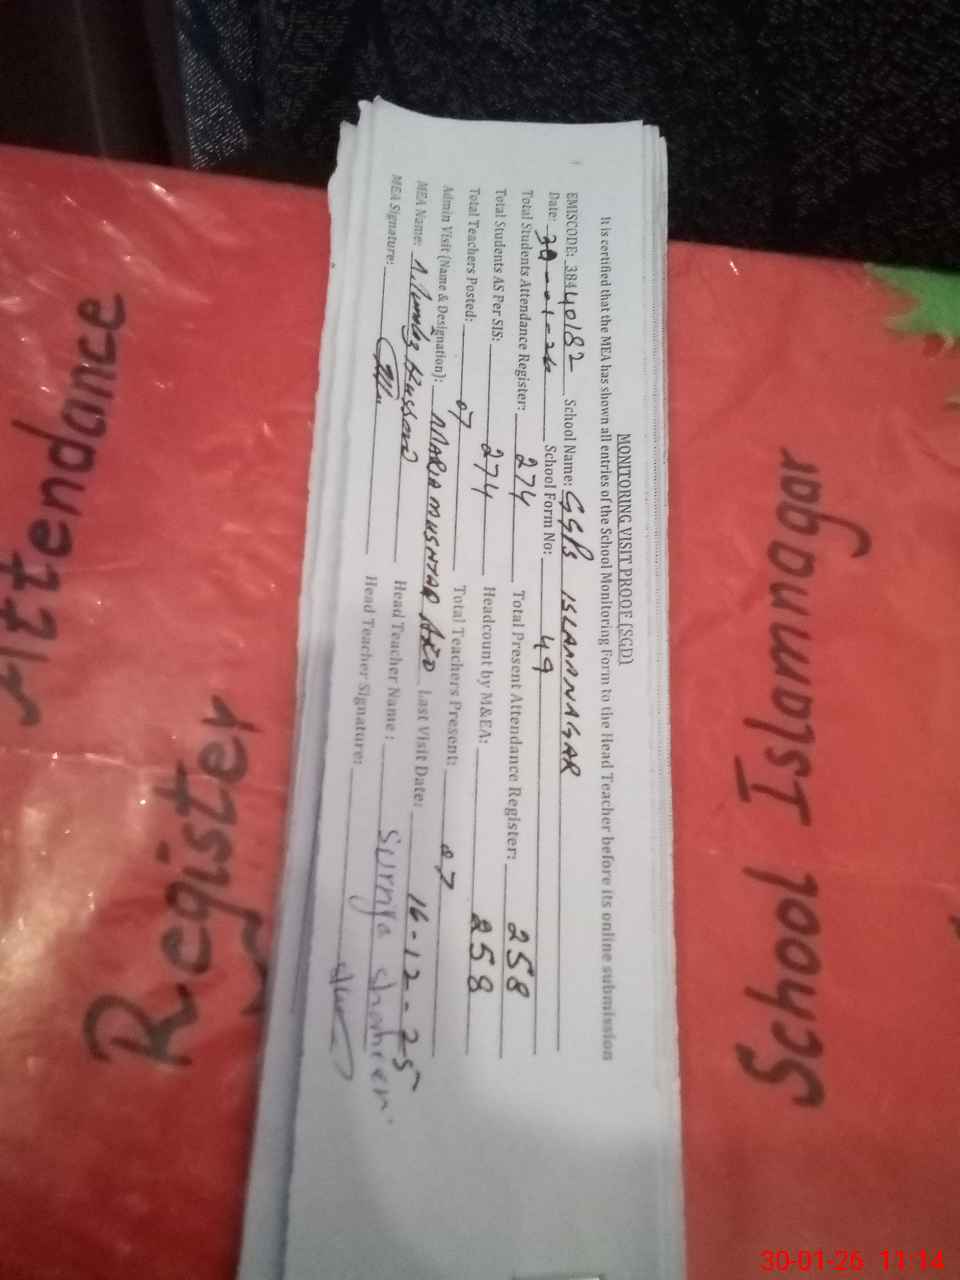 MONITORING VISIT PROOF (SGD)
It is certified that the MEA has shown all entries of the School Monitoring Form to the Head Teacher before its online submission
EMISCODE: 38440182 School Name: GGPS ISLAMNAGAR
Date: 30-01-26 School Form No: 49
Total Students Attendance Register: 274 Total Present Attendance Register: 258
Total Students AS Per SIS: 274 Headcount by M&EA: 258
Total Teachers Posted: 07 Total Teachers Present: 07
Admin Visit (Name & Designation): MARIA MUSHTAQ AEO Last Visit Date: 16-12-25
MEA Name: Hassan Head Teacher Name: Surriya Shaheen
MEA Signature: Head Teacher Signature:
Attendance
Register
School Islamnagar
30-01-26 11:14